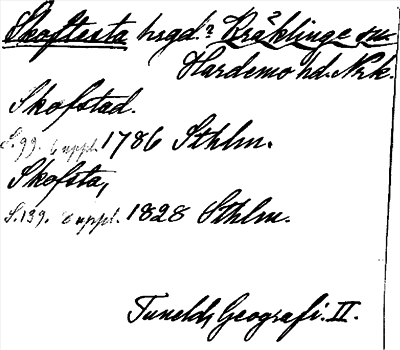 Skoftesta hrgd.? Kräklinge sn.
Hardemo hd. Nrk.
Skofstad.
S. 99. 6 uppl. 1786 Sthlm.
Skofsta,
S. 139. 8 uppl. 1828 Sthlm.
Tunelds Geografi. II.